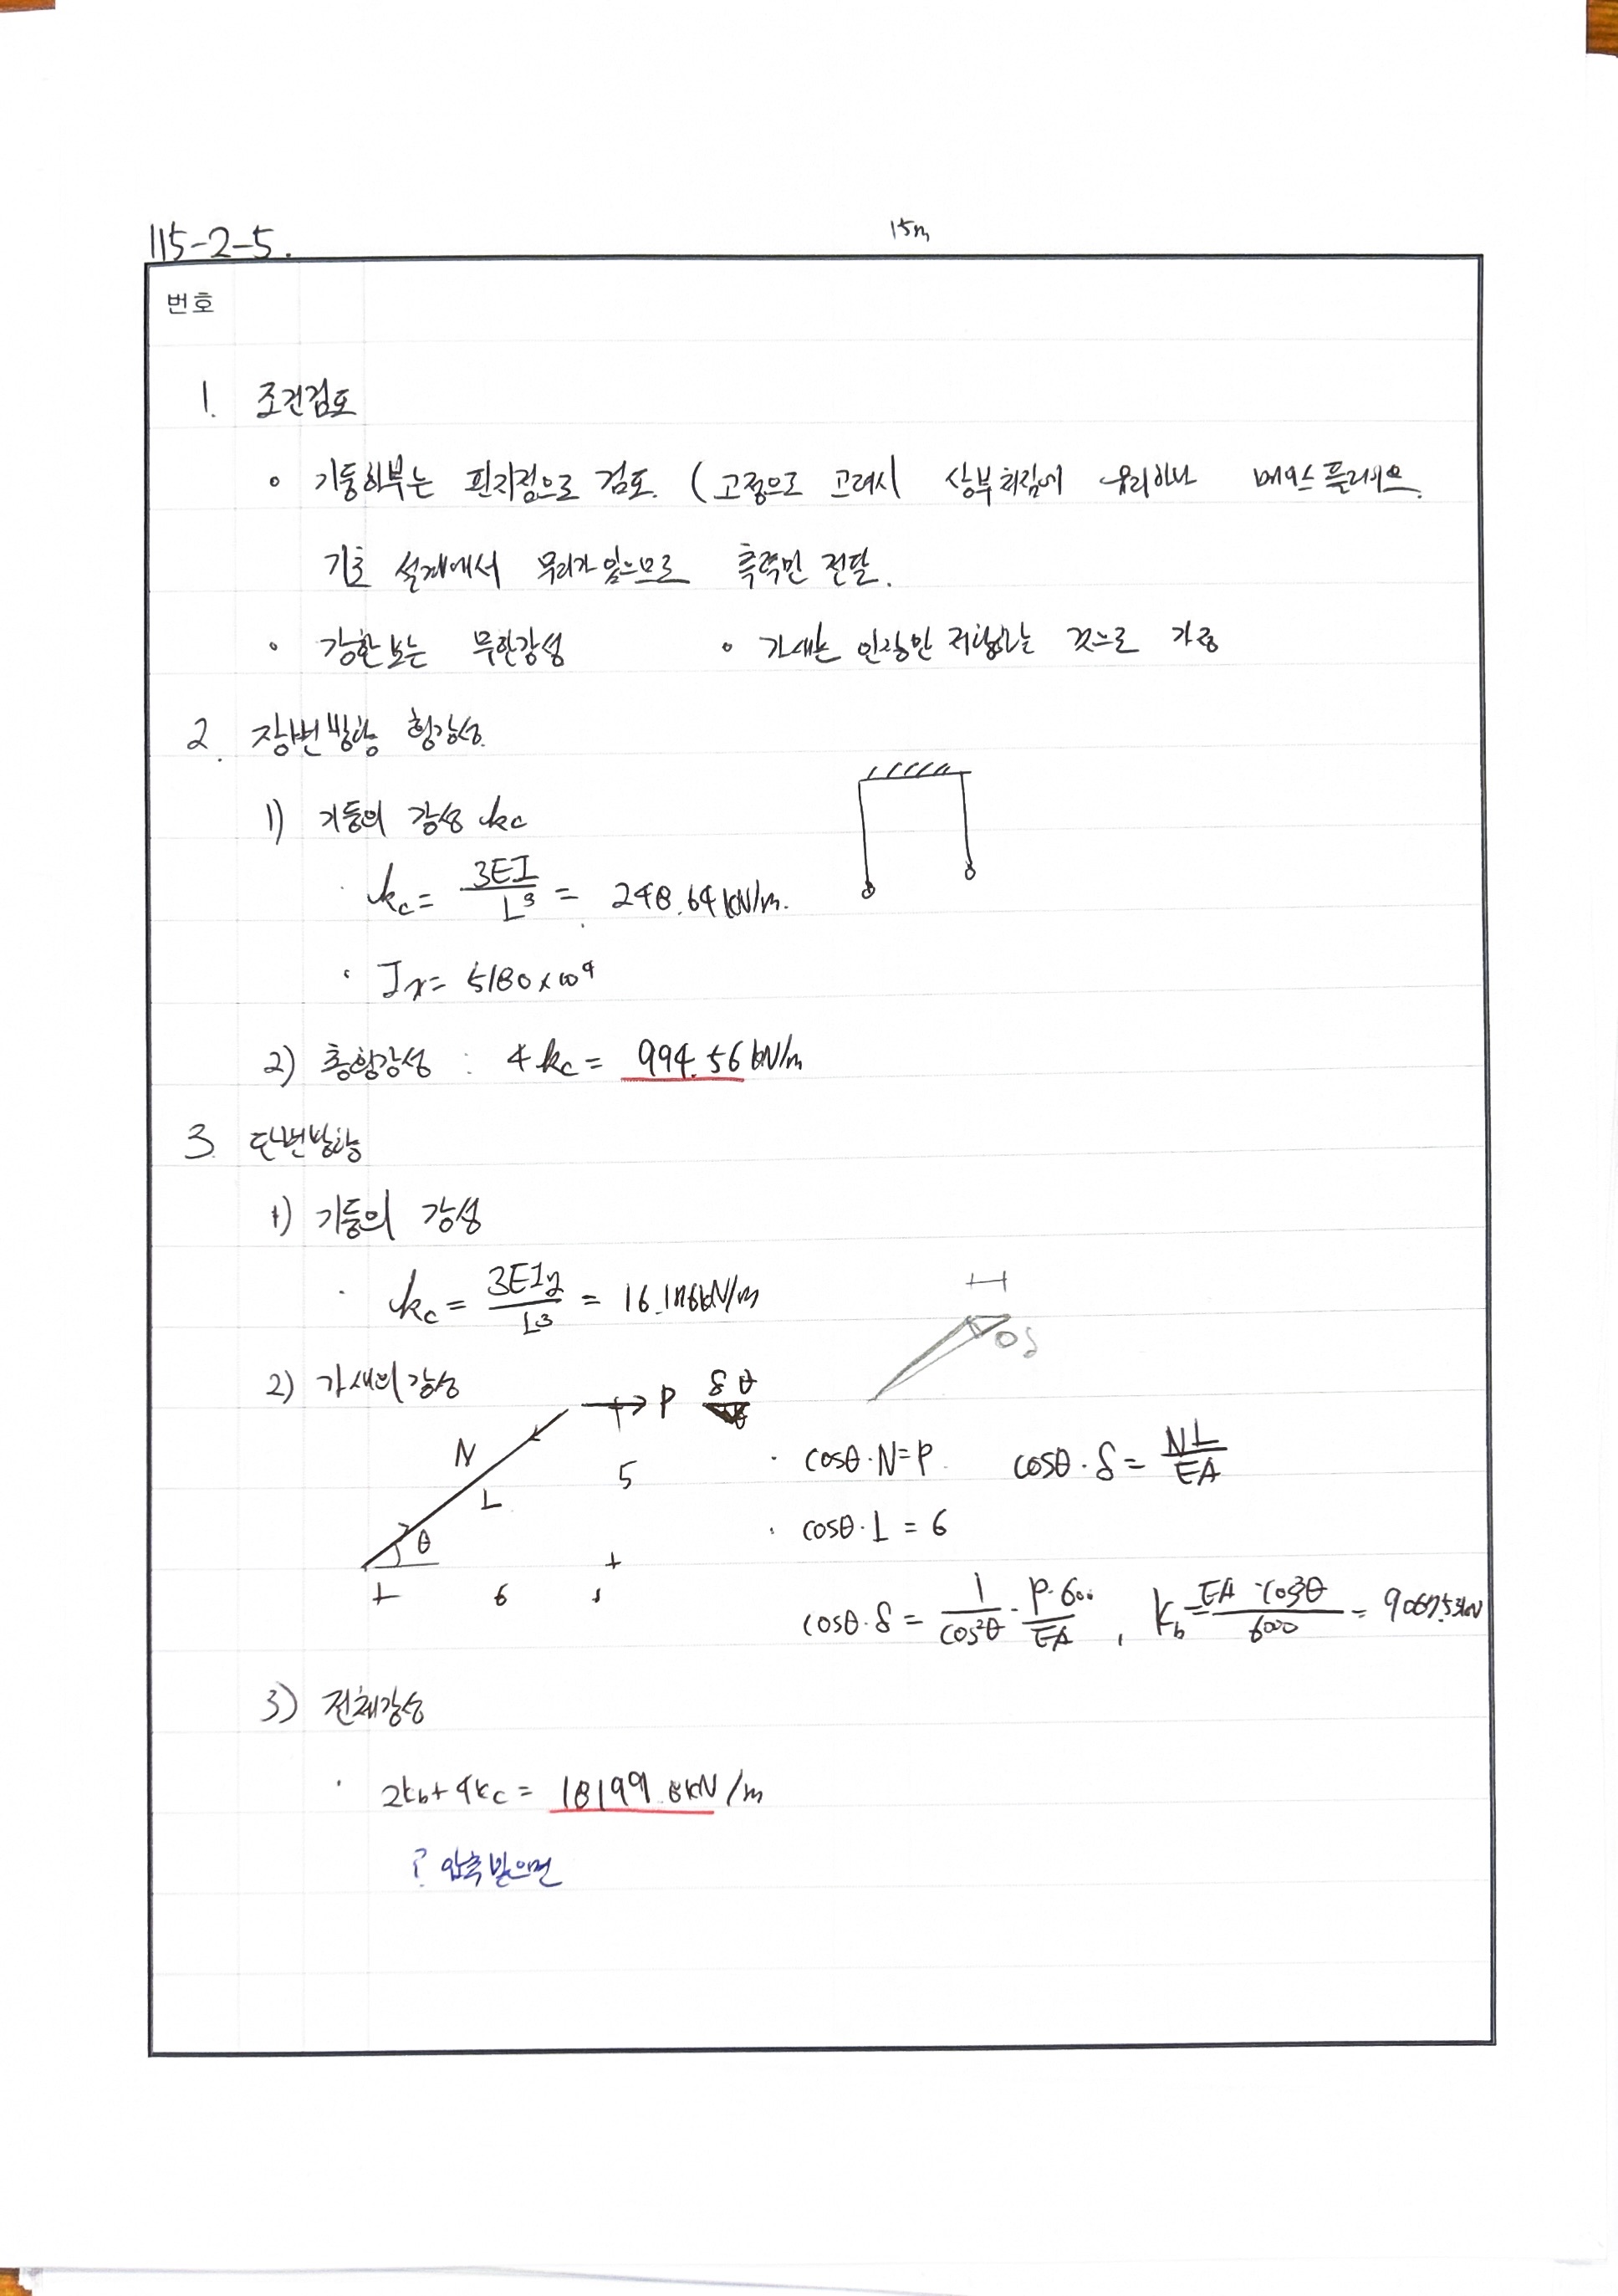 115-2-5.
15m
번호
1. 조건검토
◦ 기둥하부는 핀지점으로 검토. (고정으로 고려시 상부처짐에 유리하나 베이스플레이트.
기초 설계에서 무리가 있으므로 축력만 전달.
◦ 강한보는 무한강성 ◦ 가새는 인장만 저항하는 것으로 가정
2. 장변방향 횡강성.
1) 기둥의 강성 kc
· kc = 3EI/L³ = 248.64 kN/m.
· Ix = 5180×10⁴
2) 총횡강성 : 4kc = 994.56 kN/m
3. 단변방향
1) 기둥의 강성
· kc = 3EIy/L³ = kN/m
2) 가새의 강성
P δ θ
N L θ 5 6
δ
· cosθ·N=P. cosθ·δ = NL/EA
· cosθ·L = 6
cosθ·δ = 1/cos²θ · P·600./EA , kb = EA·cos³θ/6000 =
3) 전체강성
· 2kb+4kc = 18199.8kN/m
? 압축받으면